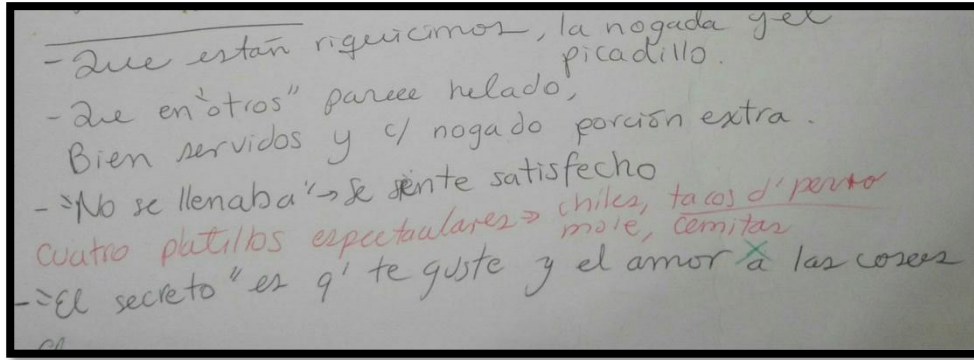 - Que están riquicimos, la nogada y el
picadillo.
- Que en "otros" parece helado,
Bien servidos y c/ nogado porción extra.
- "No se llenaba" → Se siente satisfecho
cuatro platillos espectaculares → chiles, tacos d'
mole, cemitas
- "El secreto" es q' te guste y el amor a las cosas